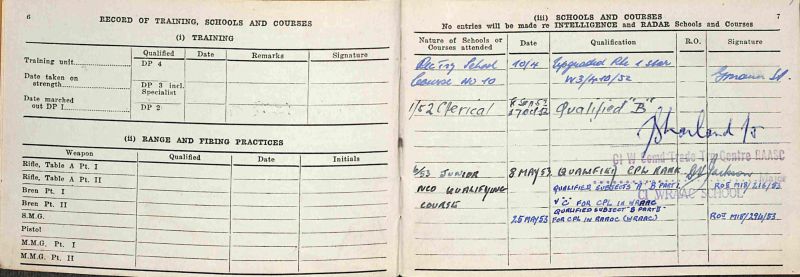 6
RECORD OF TRAINING, SCHOOLS AND COURSES
(i) TRAINING
Qualified Date Remarks Signature
Training unit DP 4
Date taken on
strength DP 3 incl.
Specialist
Date marched
out DP I DP 2
(ii) RANGE AND FIRING PRACTICES
Weapon Qualified Date Initials
Rifle, Table A Pt. I
Rifle, Table A Pt. II
Bren Pt. I
Bren Pt. II
S.M.G.
Pistol
M.M.G. Pt. I
M.M.G. Pt. II
7
(iii) SCHOOLS AND COURSES
No entries will be made re INTELLIGENCE and RADAR Schools and Courses
Nature of Schools or
Courses attended Date Qualification R.O. Signature
School 10/4 Upgraded 1 star
Course No 10
1/52 Clerical Qualified "B"
CI W Trade Centre RAASC
6/53 JUNIOR 8 MAY 53 QUALIFIED CPL RANK
NCO QUALIFYING QUALIFIED SUBJECTS "A" "B" PART I ROII M18/216/53
COURSE "C" FOR CPL IN WRAAC
CI WRAAC SCHOOL
QUALIFIED SUBJECT "B PART II"
25 MAY 53 FOR CPL IN RAAOC (WRAAC) ROII M18/294/53